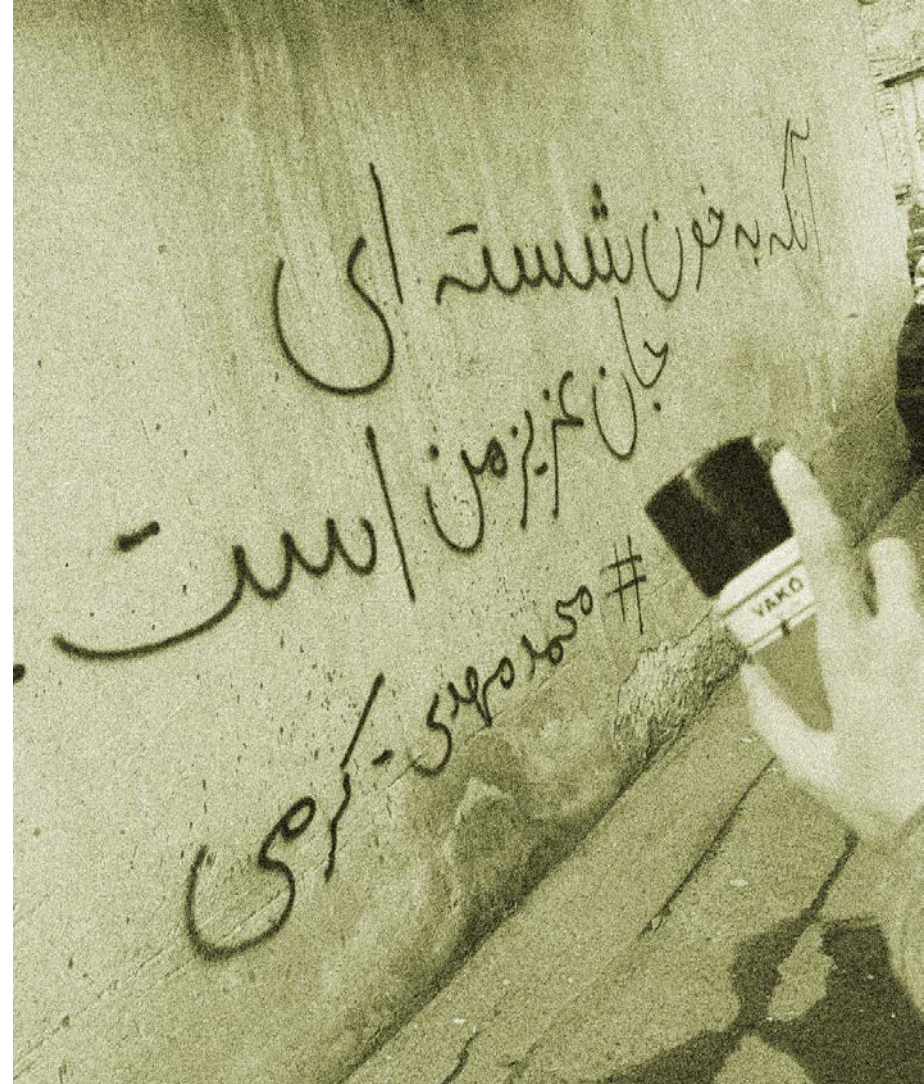 آنکه به خون شسته ای
جان عزیز من است
#محمدمهدی-کرمی
VAKO